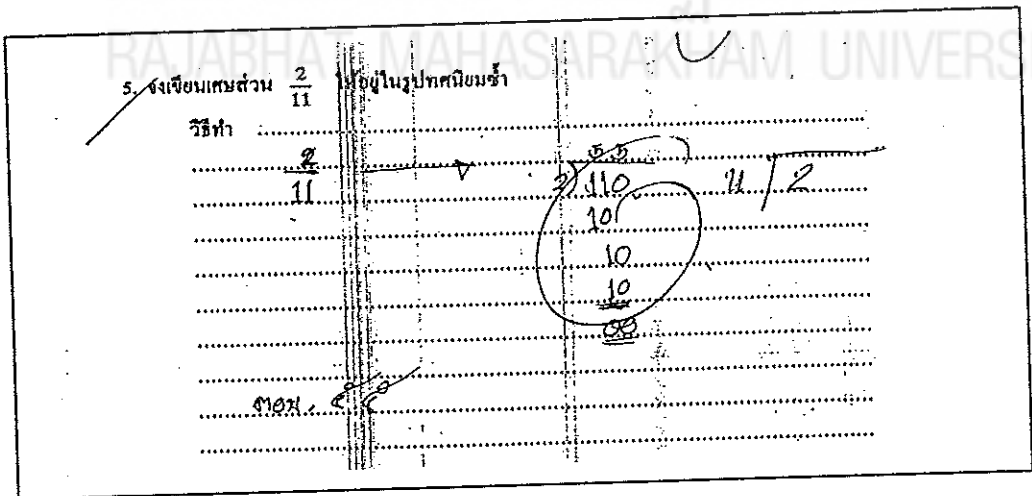 RAJABHAT MAHASARAKHAM UNIVERS
5. จงเขียนเศษส่วน 2/11 ให้อยู่ในรูปทศนิยมซ้ำ
วิธีทำ
2/11
55
2) 110 11 / 2
10
10
10
00
ตอบ.